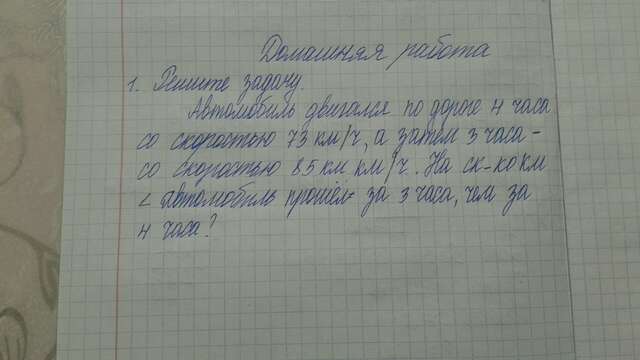 Домашняя работа
1. Решите задачу.
Автомобиль двигался по дороге 4 часа
со скоростью 73 км/ч, а затем 3 часа -
со скоростью 85 км км/ч. На ск-ко км
< автомобиль прошёл за 3 часа, чем за
4 часа?